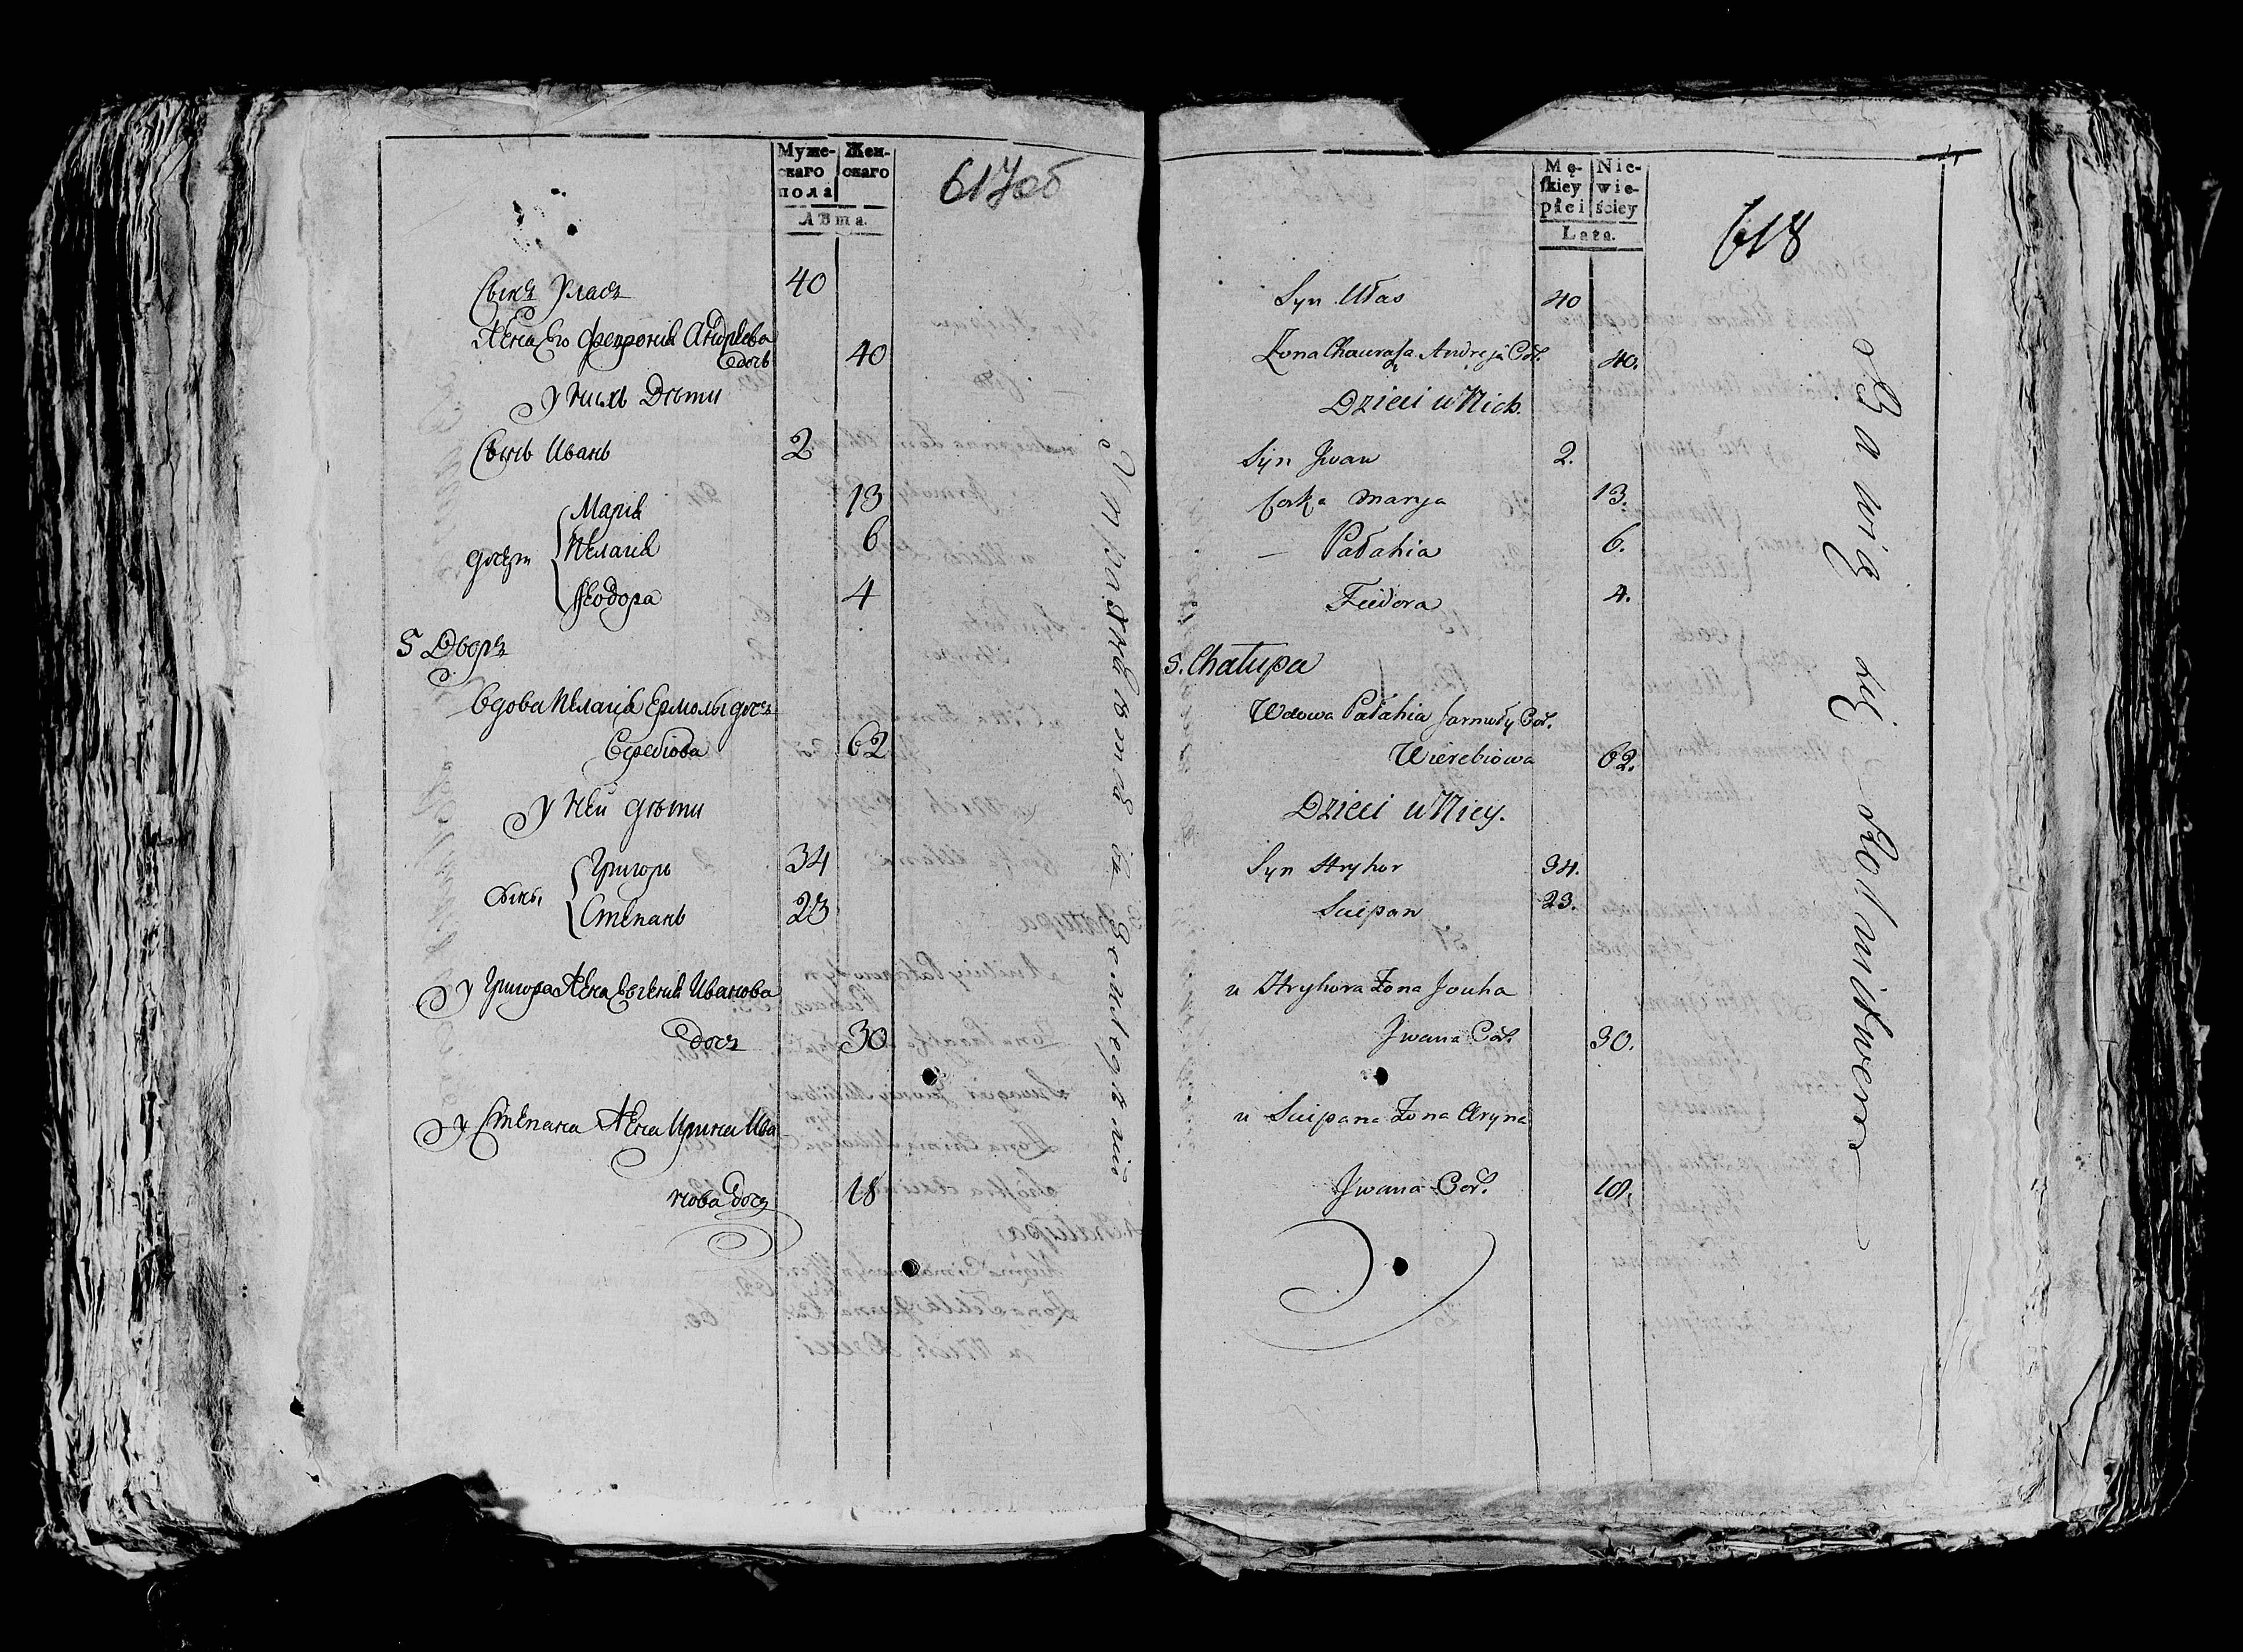 Муже-
скаго
пола
Жен-
скаго
Лѣта
617об
Сынъ Уласъ 40
Жена Его Февронія Андреева
дочь 40
у нихъ Дѣти
Сынъ Иванъ 2
Марія 13
дочери Пелагія 6
Феодора 4
5 Дворъ
Вдова Пелагія Ермолы дочь
Веребіова 62
у Ней дѣти
Григорь 34
сыны
Степанъ 23
у Григора Жена Евгенія Иванова
дочь 30
у Степана Жена Ирина Ива
нова дочь 18
Упражняются въ Земледѣліи
Mę-
skiey
płci
Nie-
wie-
ściey
Lata.
618
Syn Ułas 40
Żona Chaurasa Andreja Cór. 40.
Dzieci u Nich.
Syn Jwan 2.
Corka Marya 13.
— Pałahia 6.
Fiedora 4.
5. Chałupa
Wdowa Pałahia Jarmoły Cór.
Wierebiowa 62.
Dzieci u Niey.
Syn Hryhor 34.
Sciepan 23.
u Hryhora Żona Jouha
Jwana Cór. 30.
u Sciepana Żona Aryna
Jwana Cór. 18.
Bawią się Rolnictwem